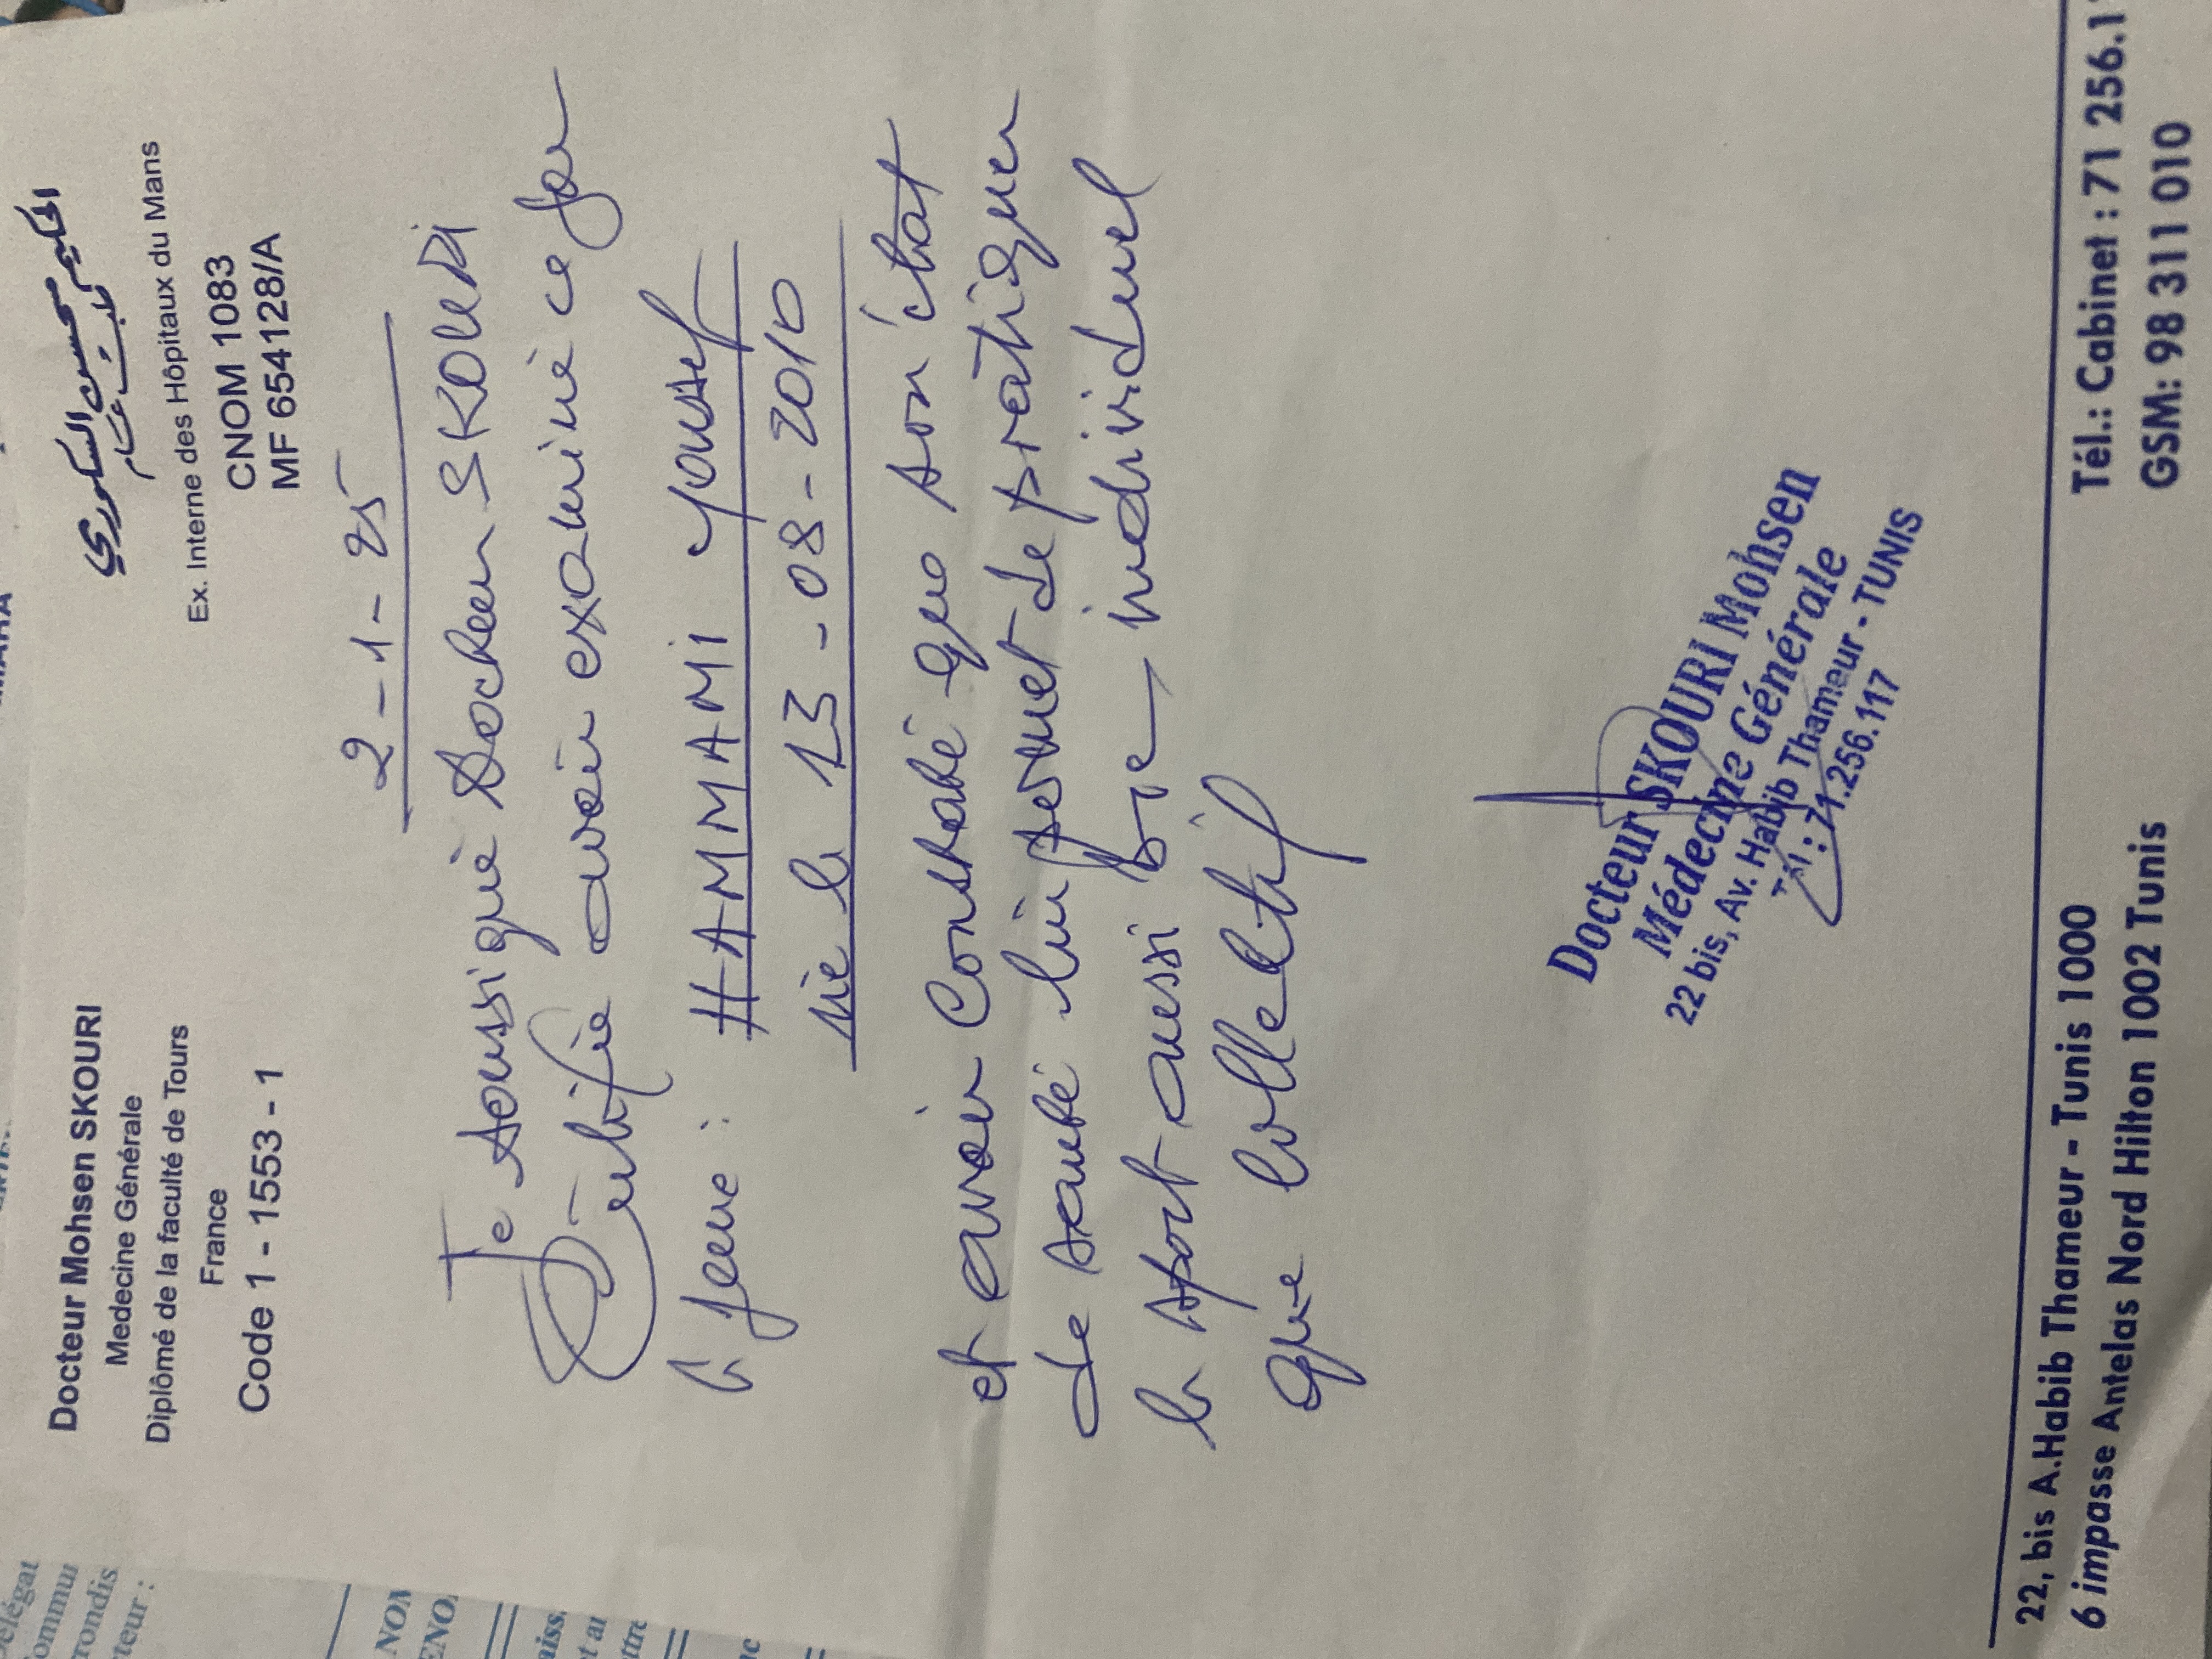 Docteur Mohsen SKOURI
Medecine Générale
Diplômé de la faculté de Tours
France
Code 1 - 1553 - 1
الحكيم محسن السكوري
طبيب عام
Ex. Interne des Hôpitaux du Mans
CNOM 1083
MF 654128/A
2-1-25
Je soussigné Docteur SKOURI
Certifie avoir examiné ce jour
le jeune : HAMMAMI Youssef
né le 13-08-2010
et avoir Constaté que son état
de santé lui permet de pratiquer
le sport aussi bien individuel
que collectif
Docteur SKOURI Mohsen
Médecine Générale
22 bis, Av. Habib Thameur - TUNIS
Tél : 71.256.117
22, bis A.Habib Thameur - Tunis 1000
6 impasse Antelas Nord Hilton 1002 Tunis
Tél.: Cabinet : 71 256.1
GSM: 98 311 010
élégat
ommu
rrondis
teur :
NOM
ENO
aiss
et ar